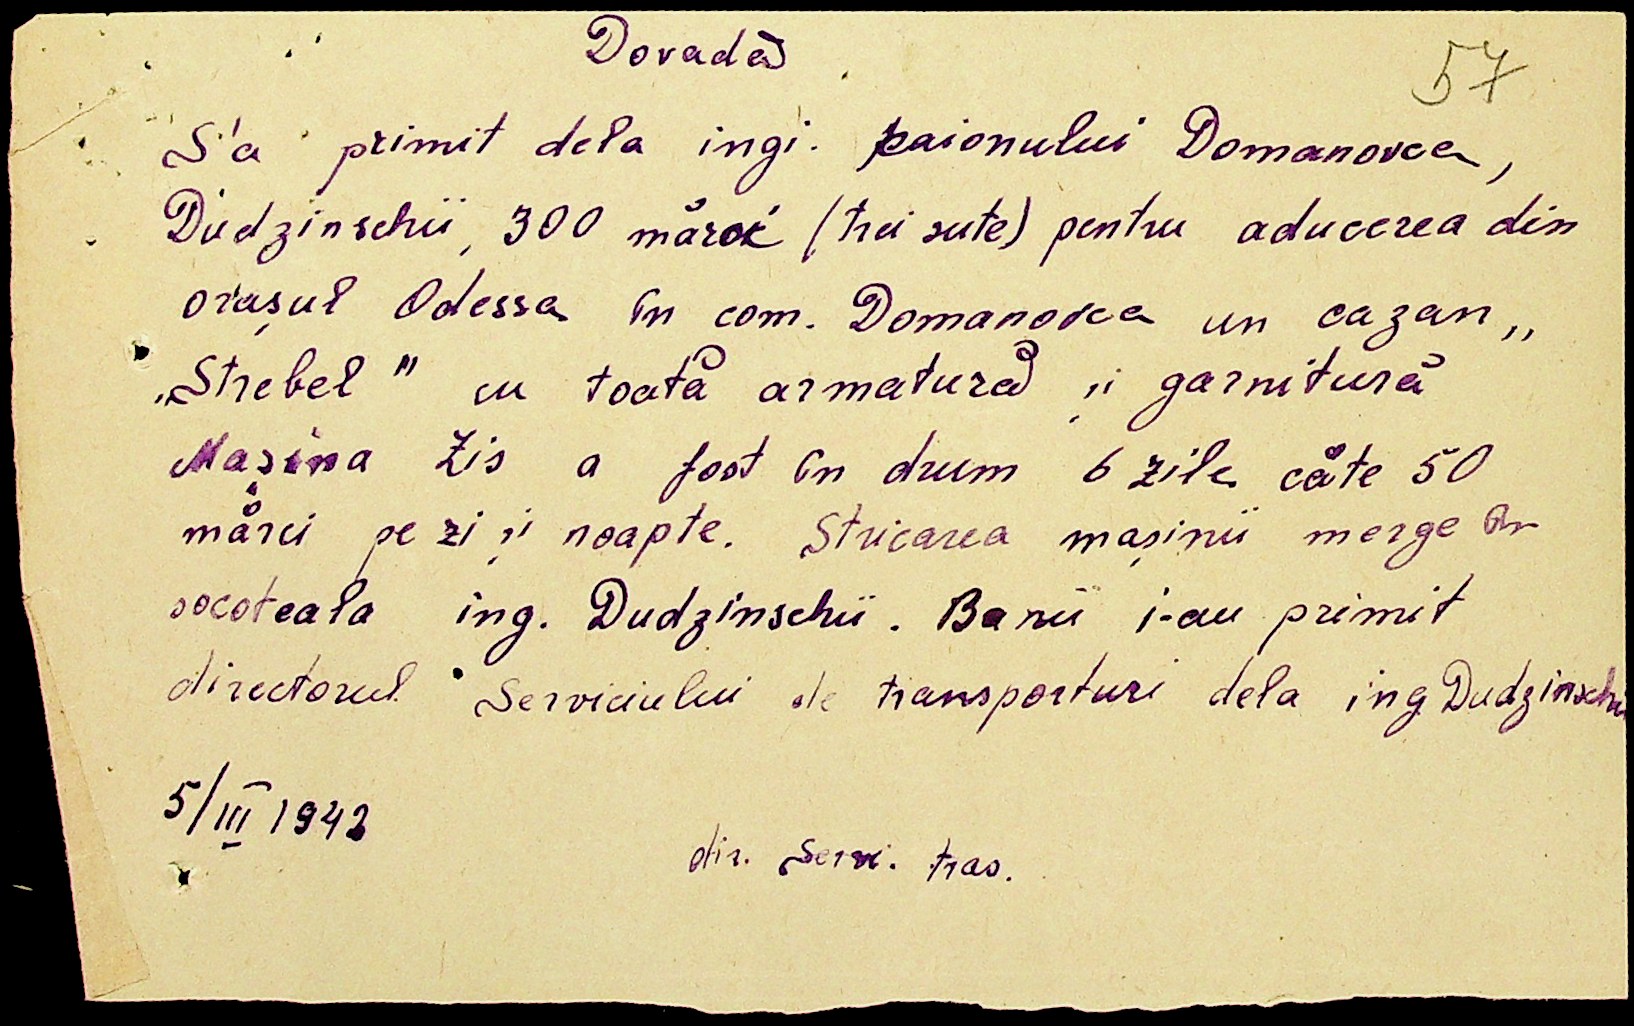 Dovadă
57
S'a primit dela ingi. raionului Domanovca,
Dudzinschii, 300 mărci (trei sute) pentru aducerea din
orașul Odessa în com. Domanovca un cazan „
„Strebel" cu toată armatură și garnitură
Mașina Zis a fost în drum 6 zile câte 50
mărci pe zi și noapte. Stricarea mașinii merge în
socoteala ing. Dudzinschii. Banii i-au primit
directorul Serviciului de transporturi dela ing Dudzinschii
5/III 1942
dir. Servi. tras.